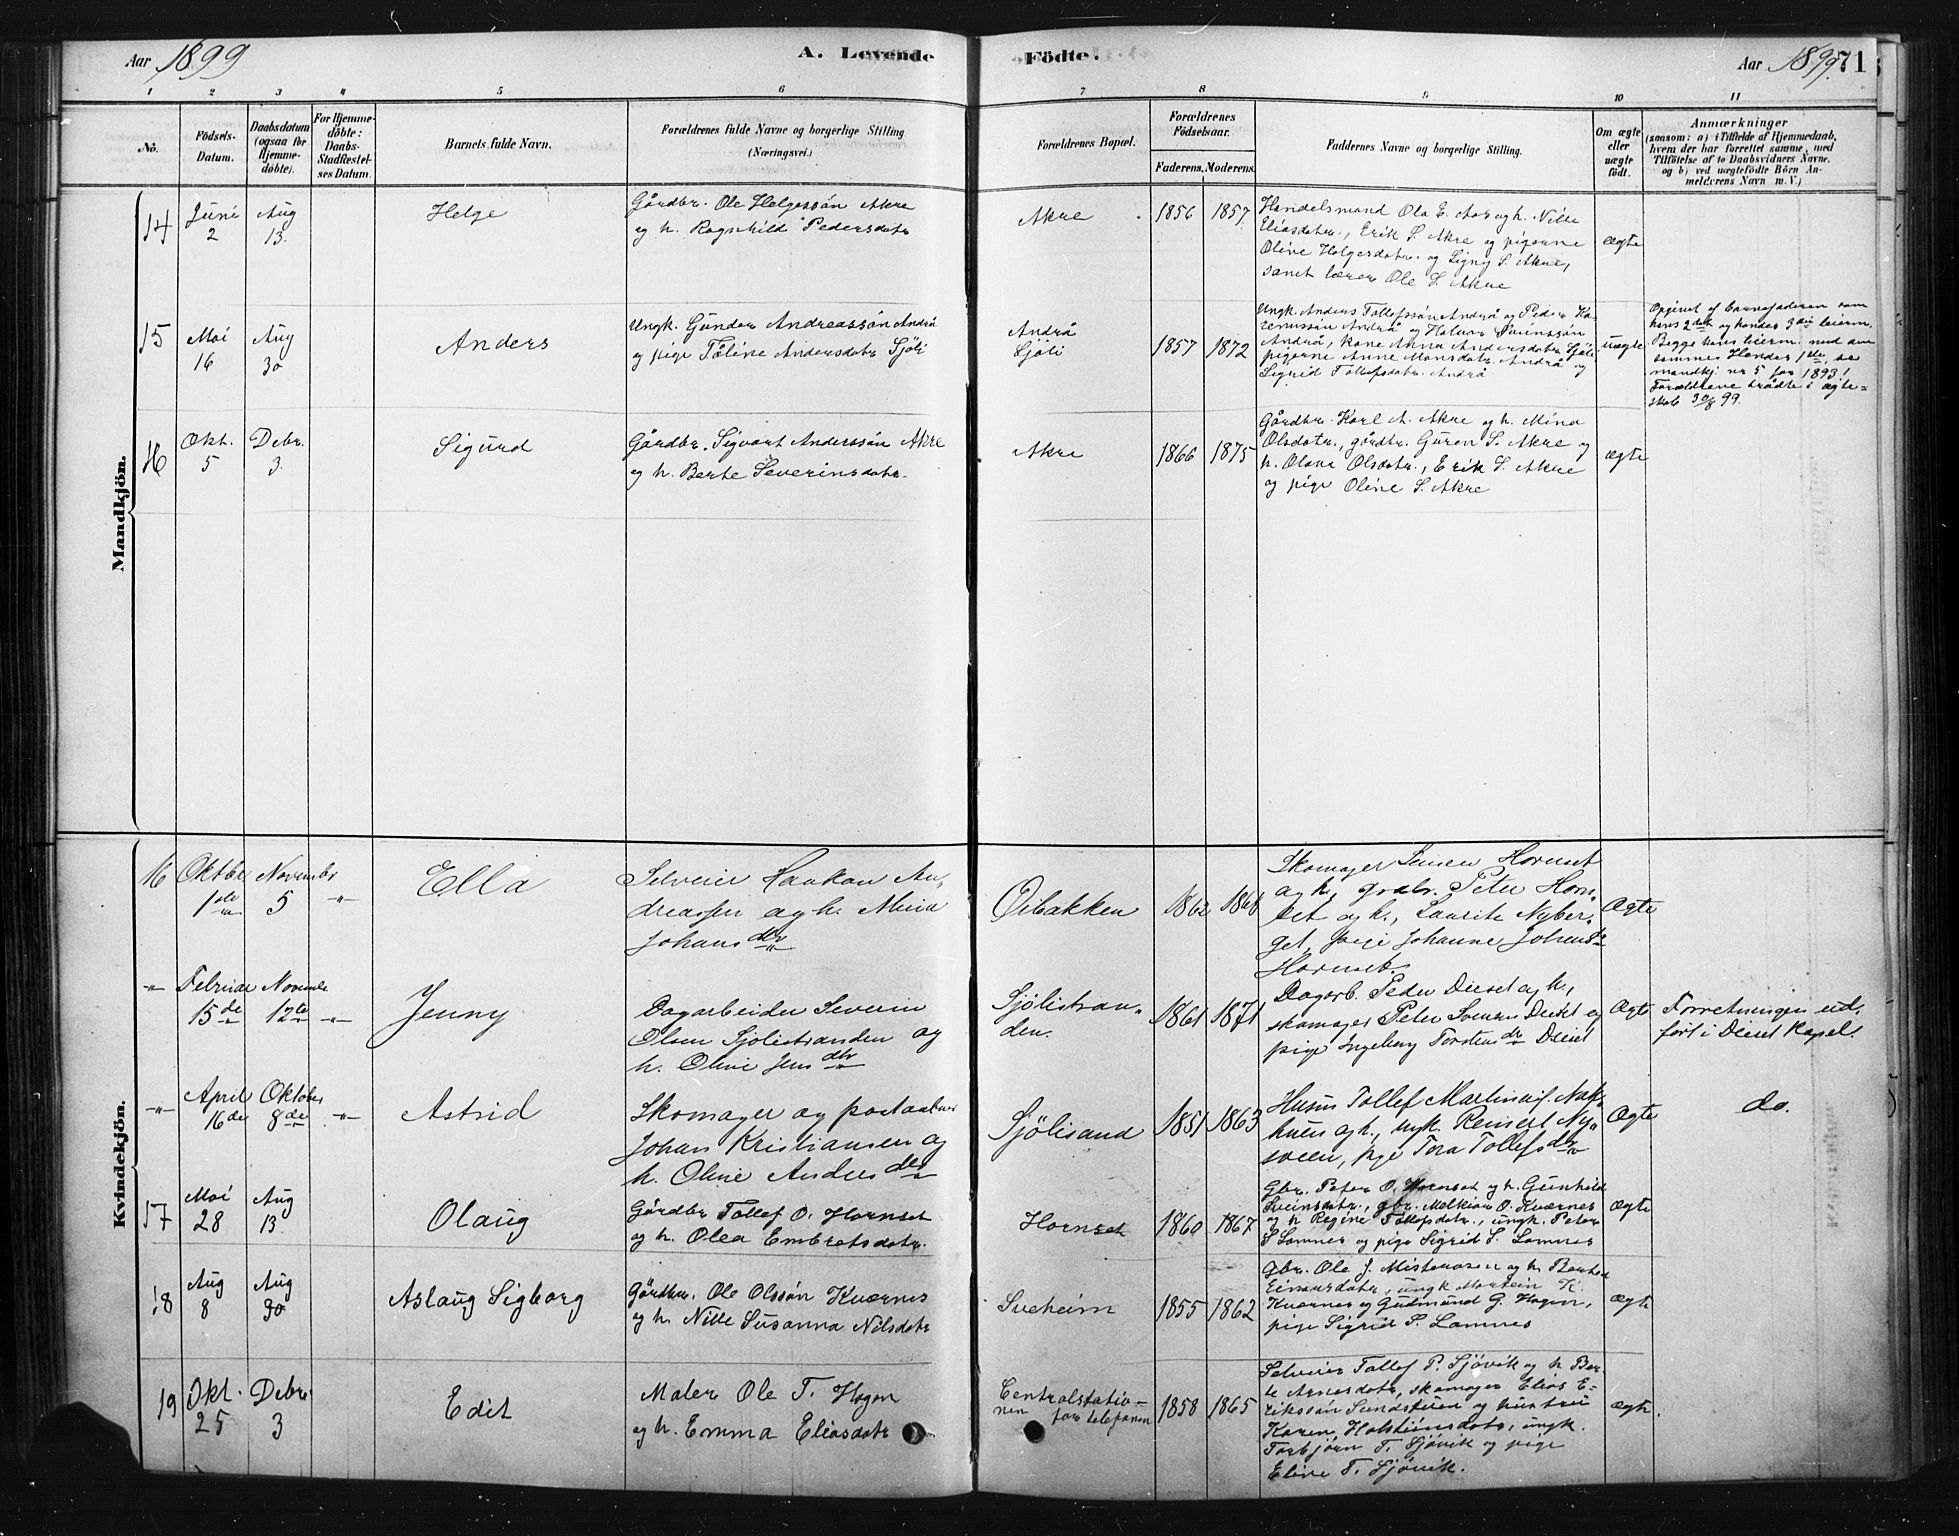 Aar 1899
A. Levende
Födte.
Aar 1899.
71
1 2 3 4 5 6 7 8 9 10 11
No.
Födsels-
Datum.
Daabsdatum
(ogsaa for
Hjemme-
döbte).
For Hjemme-
döbte:
Daabs-
Stadfæstel-
ses Datum.
Barnets fulde Navn.
Forældrenes fulde Navne og borgerlige Stilling
(Næringsvei.)
Forældrenes Bopæl.
Forældrenes
Födselsaar.
Faderens. Moderens.
Faddernes Navne og borgerlige Stilling.
Om ægte
eller
uægte
födt.
Anmærkninger
(saasom: a) i Tilfælde af Hjemmedaab,
hvem der har forrettet samme, med
Tilföielse af to Daabsvidners Navne.
og b) ved uægtefödte Börn An-
melderens Navn m. V.)
Mandkjön.
14
Juni
2
Aug
13.
Helge
Gårdbr. Ole Helgessön Akre
og h. Ragnhild Pedersdotr
Akre
1856 1857
Handelsmand Ola E. Aas og h. Nille
Eliasdotr., Erik S. Akre og pigerne
Oline Helgesdotr. og Signy S. Akre,
samt lærer Ole S. Akre
ægte
15
Mai
16
Aug
30
Anders
Ungk. Gunder Andreassön Andrå
og pige Töline Andersdotr Sjöli
Andrå
Sjöli
1857 1872
Ungk. Anders Tollefssön Andrå og Peder
Andrå og Halvor Sveinssön
Andrå, kone Anna Andersdotr Sjöli
pigerne Anne Monsdotr. Andrå og
Sigrid Tollefsdotr. Andrå
uægte
Opgivet af barnefaderen som
hans 2det og hendes 3die leierm.
Begge hans leierm. med den
samme. Hendes 1ste, se
mandkj. nr 5 for 1893!
Forældrene trådte i ægte=
skab 3/8 99.
16
Okt.
5
Debr.
3.
Sigurd
Gårdbr. Sigvart Anderssön Akre
og h. Berte Severinsdotr.
Akre
1866 1875
Gårdbr. Karl A. Akre og h. Mina
Olsdotr., gårdbr. Guren S. Akre og
h. Olava Olsdotr., Erik S. Akre
og pige Oline S. Akre
ægte
Kvindekjön.
16
Oktbr
1ste
Novembr
5
"
Ella
Selveier Haakon An-
dreassen og h.
Johans dtr
Öibakken
1862
Skomager Hornset
og h., grdbr. Peter Horn-
set og h., Laurits Nyber-
get, pige Johanne Johans dtr
Hornset.
Ægte
"
Februar
15de
Novemb
12te
"
Jenny
Dagarbeider Severin
Olsen Sjölistranden og
h. Oline Jens dtr
Sjölistran-
den.
1861 1871
Dagarb. Peder Dieset og h.,
skomager Peter Svensen Dieset og
pige Ingeborg Torstens dtr Dieset
Ægte
Forretningen ud-
fört i Dieset Kapel.
"
April
16de
Oktober
8de
"
Astrid
Skomager og postaabner
Johan Kristiansen og
h. Oline Anders dtr
Sjölisand
1851 1863
Husm Tollef Martinus. Nak-
huen og h., ungk. Reinert Ny-
sveen, pige Tora Tollefs dtr
Ægte
do.
17
Mai
28
Aug
13
Olaug
Gårdbr Tollef O. Hornset
og h. Olea Embretsdotr.
Hornset
1860 1867
Gbr. Peter O. Hornset og h. Gunhild
Sveinsdotr., gbr. Melkior O. Kværnes
og h Regine Tollefsdotr., ungk. Peter
S Lomnes og pige Sigrid S. Lomnes
ægte
18
Aug
8
Aug
30
Aslaug Sigborg
Gårdbr. Ole Olssön Kværnes
og h. Nille Susanna Nilsdotr
Sveheim
1855 1862
Gbr. Ole J. Misterosen og h. Berthe
Einarsdotr., ungk. Mortein K.
Kværnes og Gudmund G. Hagen,
pige Sigrid S. Lomnes
ægte
19
Okt.
25
Debr
3
Edit
Maler Ole T. Hagen
og h. Emma Eliasdotr
Centralstatio-
nen for telefonen
1858 1865
Selveier Tollef P. Sjövik og h Ber-
te Arnesdotr, skomager Elias E-
rikssön Sundstuen og hustru
Karen Halsteinsdotr, ungk.
Torbjörn T. Sjövik og pige
Eline T. Sjövik.
ægte